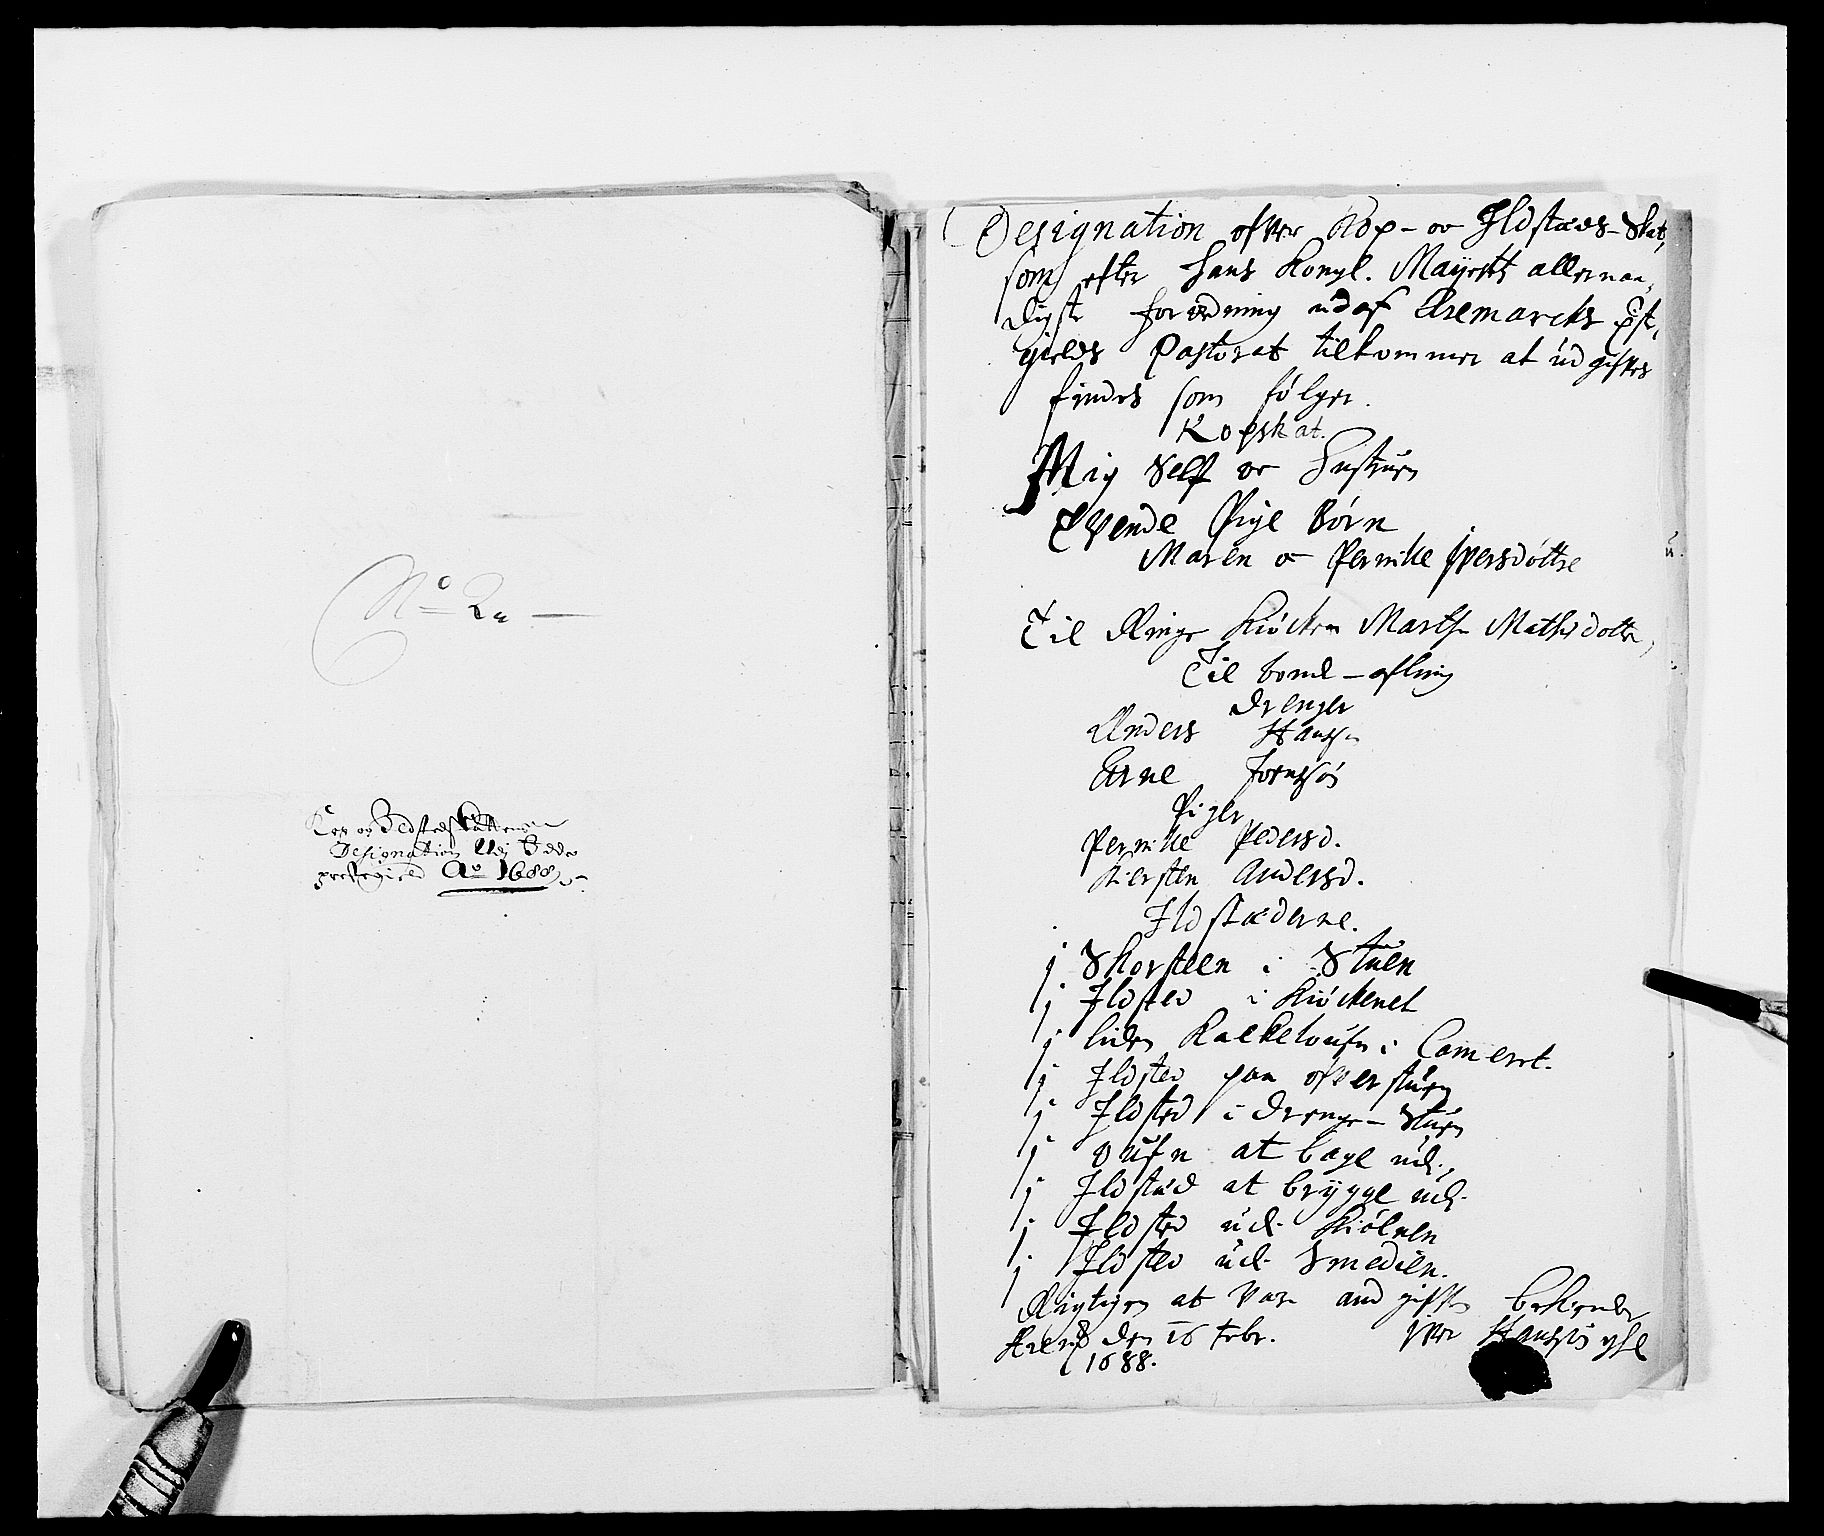 No 2
Kop oc Ildstedskattens
Designation Udj
præstegield Ao 1688
Designation ofver Kop- oc Ildstæds-Skat,
som efter hans Kongl. Mayestts allernaa,
digste forordning udaf Aremarcks Pst,
gields Pastorat tilkommer at udgifves
findes som følger.
Kopskat.
Mig Self oc Hustruen
Tvende Pige Børn
Maren oc Pernille Iversdøttre
Til Ringe Kiøcken Marthe Mathisdotter,
Til bond-afling
drenger
Anders Hansen
Arne Joensøn
Piger
Pernille Pedersd.
Kiersten Andersd.
Ildstæderne.
j Skorsteen i Stuen
j Ildsted i Kiøckenet
j liden Kackeloufn i Cameret.
j Ildsted paa ofverstuen
j Ildsted i Drenge-Stuen
j Oufn at bage udi,
j Ildstæd at brygge udi
j Ildsted udi Kiølnen
j Ildsted udi Smedien.
Rigtigen at Være and gifven bekiender
Arem. den 16 Febr. Iver Hansøn
1688.
u.